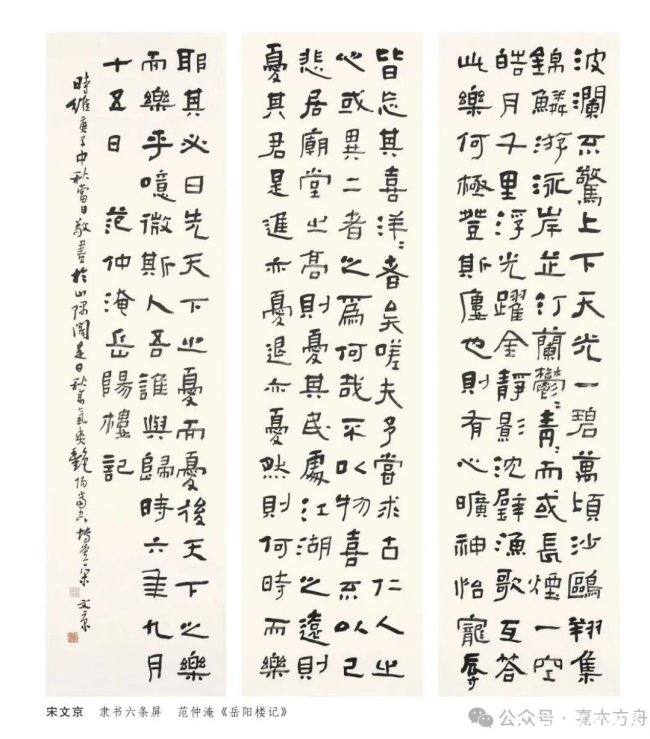 波瀾不驚上下天光一碧萬頃沙鷗翔集
錦鱗游泳岸芷汀蘭鬱〻青〻而或長煙一空
皓月千里浮光躍金靜影沈璧漁歌互答
此樂何極登斯廔也則有心曠神怡寵辱
皆忘其喜洋〻者矣嗟夫予嘗求古仁人之
心或異二者之爲何哉不以物喜不以己
悲居廟堂之高則憂其民處江湖之遠則
憂其君是進亦憂退亦憂然則何時而樂
耶其必曰先天下之憂而憂後天下之樂
而樂乎噫微斯人吾誰與歸時六年九月
十五日 范仲淹岳陽樓記
時維庚子中秋當日敬書於山閣是日秋高氣爽宋文京
宋文京 隶书六条屏 范仲淹《岳阳楼记》
公众号·毫木方舟